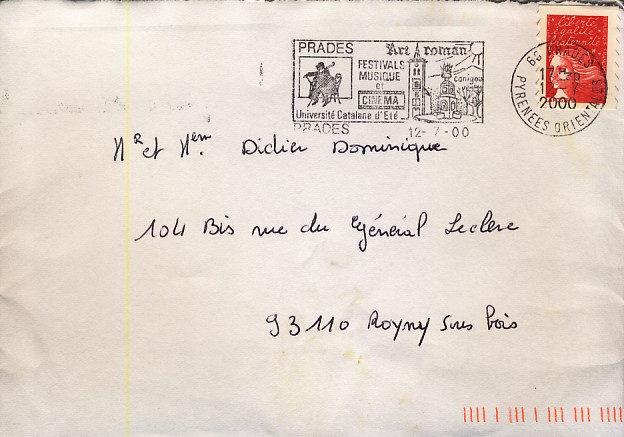 PRADES Art roman
FESTIVALS
MUSIQUE
et
CINEMA
Canigou
Université Catalane d'Eté
PRADES 12-7-00
liberté
égalité
fraternité
66 PRADES
17H
12-7
2000
PYRENEES ORIENTALES
Mr et Mem Didier Dominique
104 Bis rue du Général Leclerc
93110 Rosny sous bois